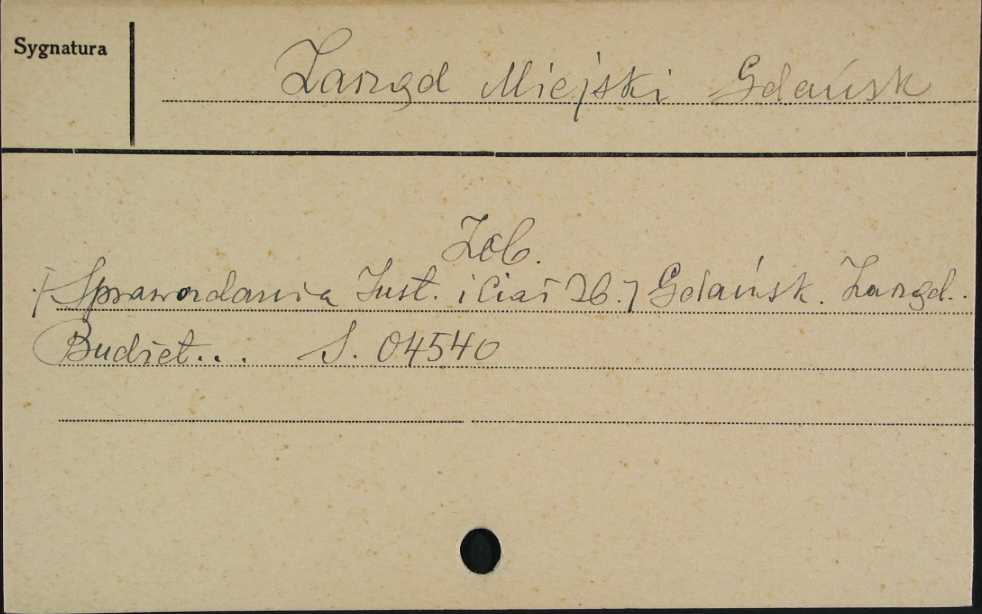 Sygnatura
Zarząd Miejski Gdańsk
Zob.
[Sprawozdania Inst. i Ciał Zb.] Gdańsk. Zarząd..
Budżet... S. 04540